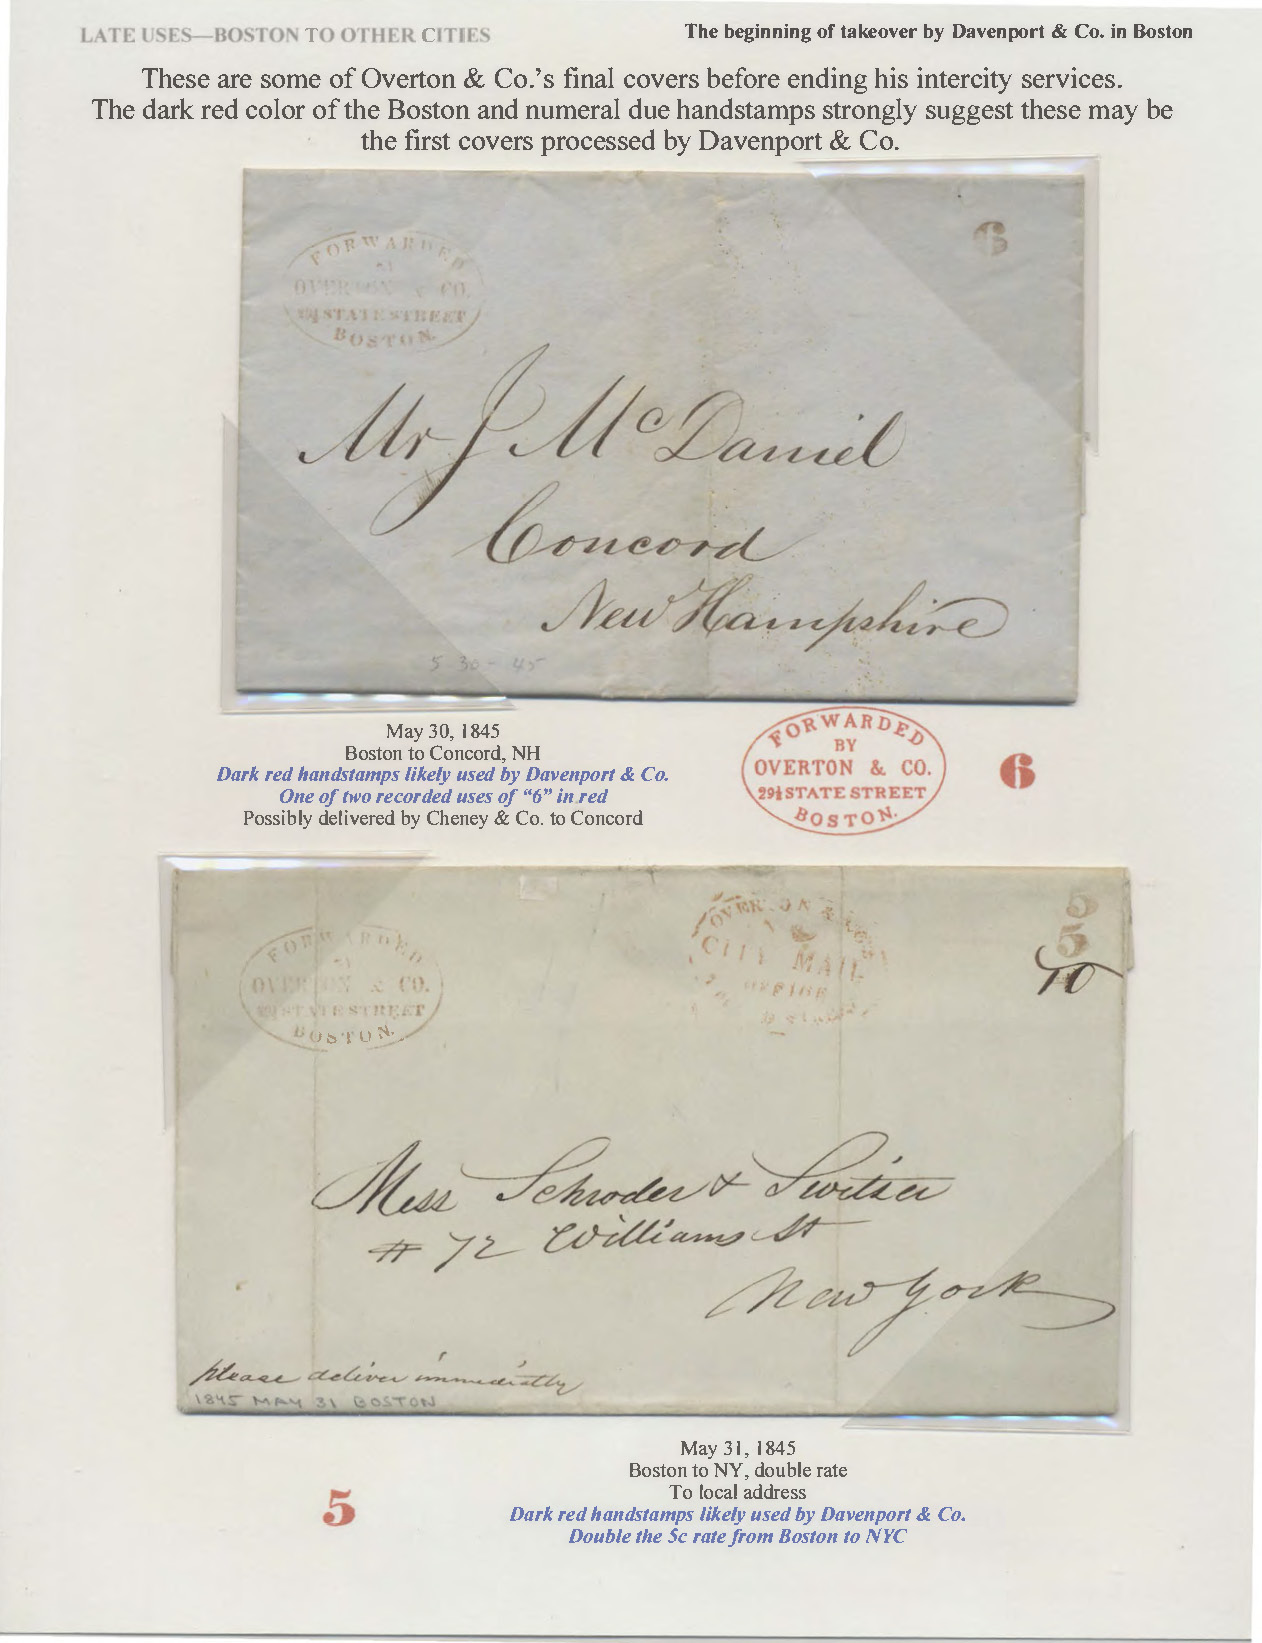 LATE USES—BOSTON TO OTHER CITIES
The beginning of takeover by Davenport & Co. in Boston
These are some of Overton & Co.'s final covers before ending his intercity services.
The dark red color of the Boston and numeral due handstamps strongly suggest these may be
the first covers processed by Davenport & Co.
FORWARDED
OVERTON & CO.
29½ STATE STREET
BOSTON.
6
Mr J McDaniel
Concord
New Hampshire
5 30 - 45
May 30, 1845
Boston to Concord, NH
Dark red handstamps likely used by Davenport & Co.
One of two recorded uses of “6” in red
Possibly delivered by Cheney & Co. to Concord
FORWARDED
BY
OVERTON & CO.
29½ STATE STREET
BOSTON.
6
FORWARDED
OVERTON & CO.
STATE STREET
BOSTON.
OVERTON &
CITY MAIL
OFFICE
5
5
10
Mess Schroder & Switser
# 72 Williams St
New York
please deliver immediatly
1845 MAY 31 BOSTON
May 31, 1845
Boston to NY, double rate
To local address
Dark red handstamps likely used by Davenport & Co.
Double the 5c rate from Boston to NYC
5